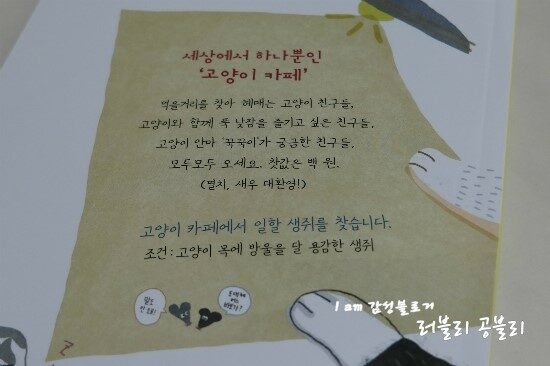 세상에서 하나뿐인
'고양이 카페'
먹을거리를 찾아 헤매는 고양이 친구들,
고양이와 함께 푹 낮잠을 즐기고 싶은 친구들,
고양이 안마 '꾹꾹이'가 궁금한 친구들,
모두모두 오세요. 찻값은 백 원.
(멸치, 새우 대환영!)
고양이 카페에서 일할 생쥐를 찾습니다.
조건 : 고양이 목에 방울을 달 용감한 생쥐
I am 감성블로거
러블리 공블리